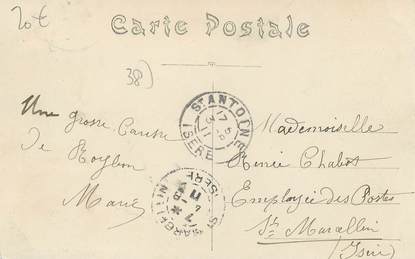 20 €
Carte Postale
38)
ST ANTOINE
ISERE
Une grosse
de
Marie
Mademoiselle
Renée Chabot
Employée des Postes
St Marcellin
(Isère)
ST MARCELLIN
ISERE